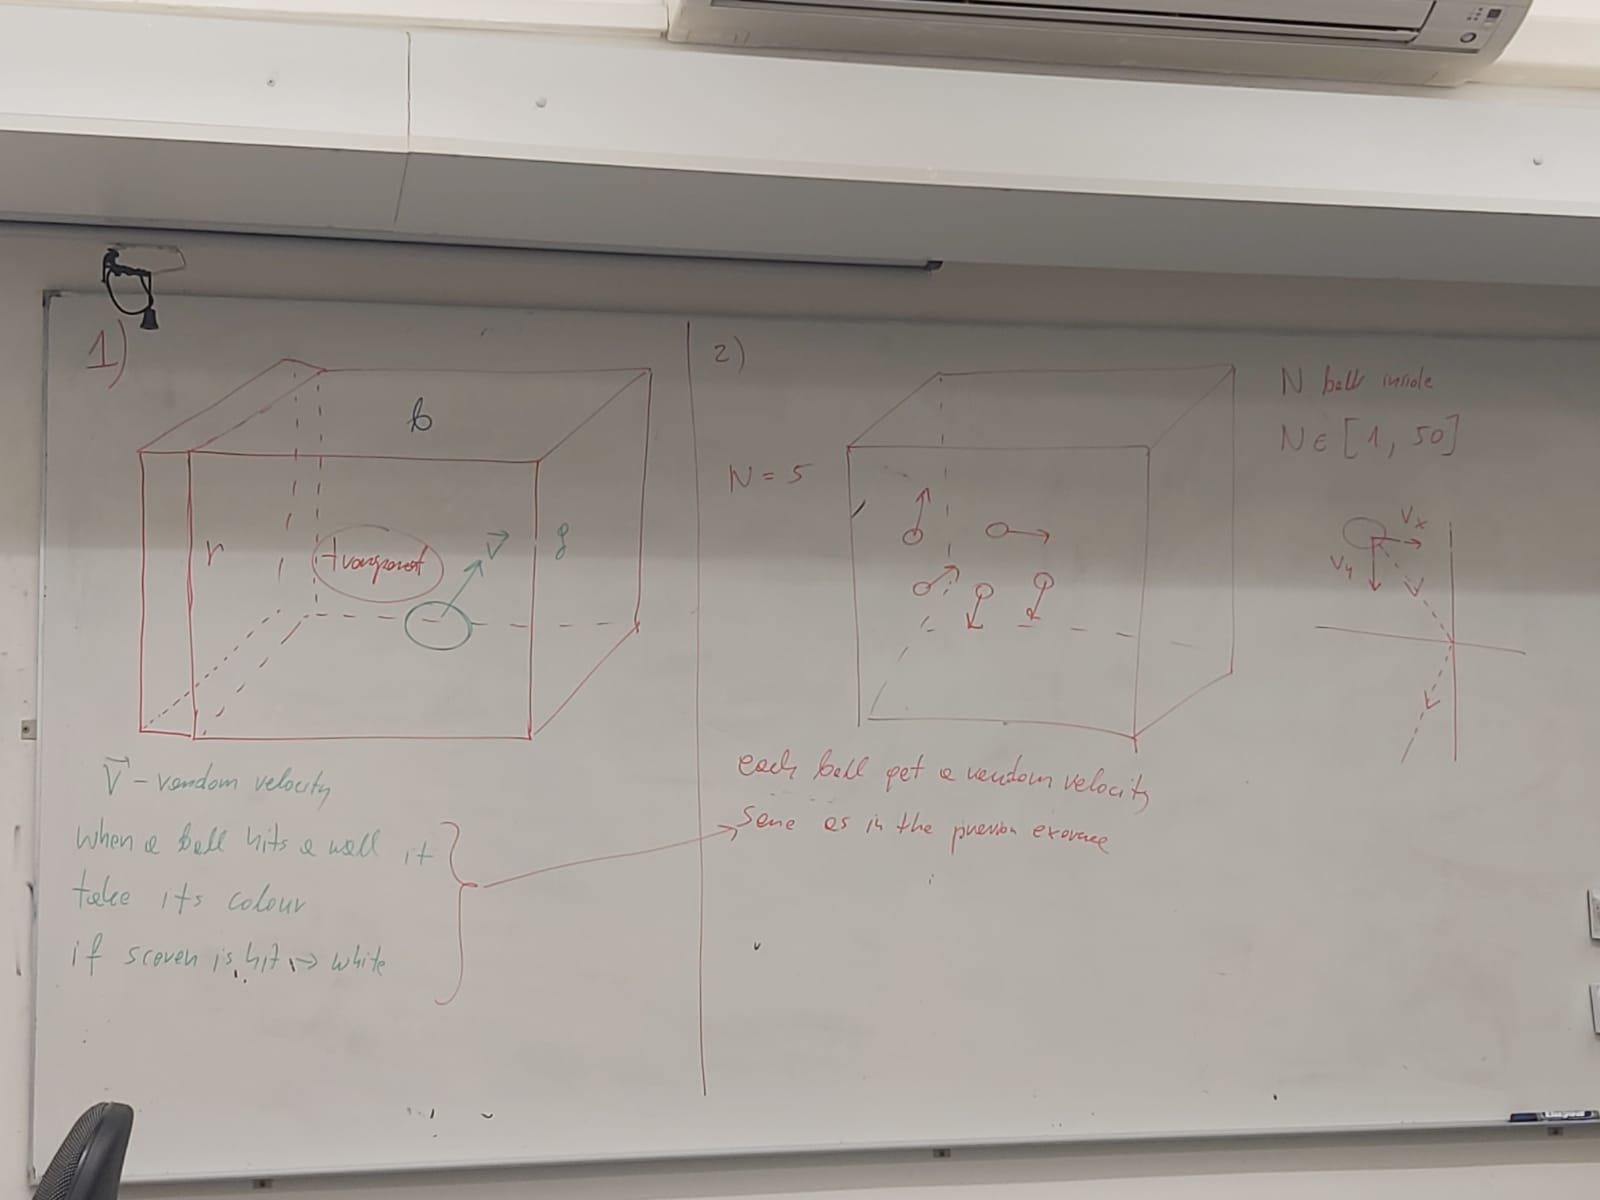 1)
b
r
transparent
V
g
V - random velocity
when a ball hits a wall it
take its colour
if screen is hit → white
2)
N = 5
N balls inside
N ∈ [1, 50]
Vx
Vy
V
each ball get a random velocity
same as in the previous exercise